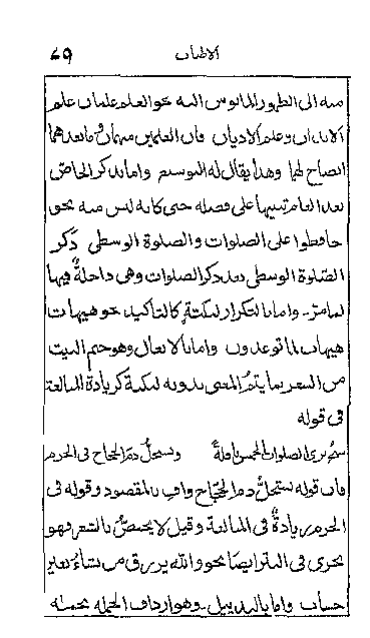 ٤٩ الاطناب
منه الى الظهور المانوس اليه نحو العلم علمان علم
الابدان وعلم الاديان فان العلمين مبهمان وما بعدهما
ايضاح لهما وهذا يقال له التوسيع واما بذكر الخاص
بعد العام تنبيها على فضله حتى كانه ليس منه نحو
حافظوا على الصلوات والصلوة الوسطى ذكر
الصلوة الوسطى بعد ذكر الصلوات وهى داخلة فيها
لما مر۔ واما بالتكرار لنكتةٍ كالتاكيد نحو هيهات
هيهات لما توعدون واما بالايغال وهو ختم البيت
من الشعر بما يتمُّ المعنى بدونه لنكتة كزيادة المبالغة
فى قوله
يرى الصلوات الخمس نافلةً ويستحلُّ دم الحجاج فى الحرم
فان قوله يستحلُّ دم الحجّاج وافٍ بالمقصود وقوله فى
الحرم زيادةٌ فى المبالغة وقيل لا يختصُّ بالشعر فهو
يجرى فى النثر ايضًا نحو والله يرزق من يشاء بغير
حساب واما بالتذييل۔ وهو ارداف الجملة بجملة